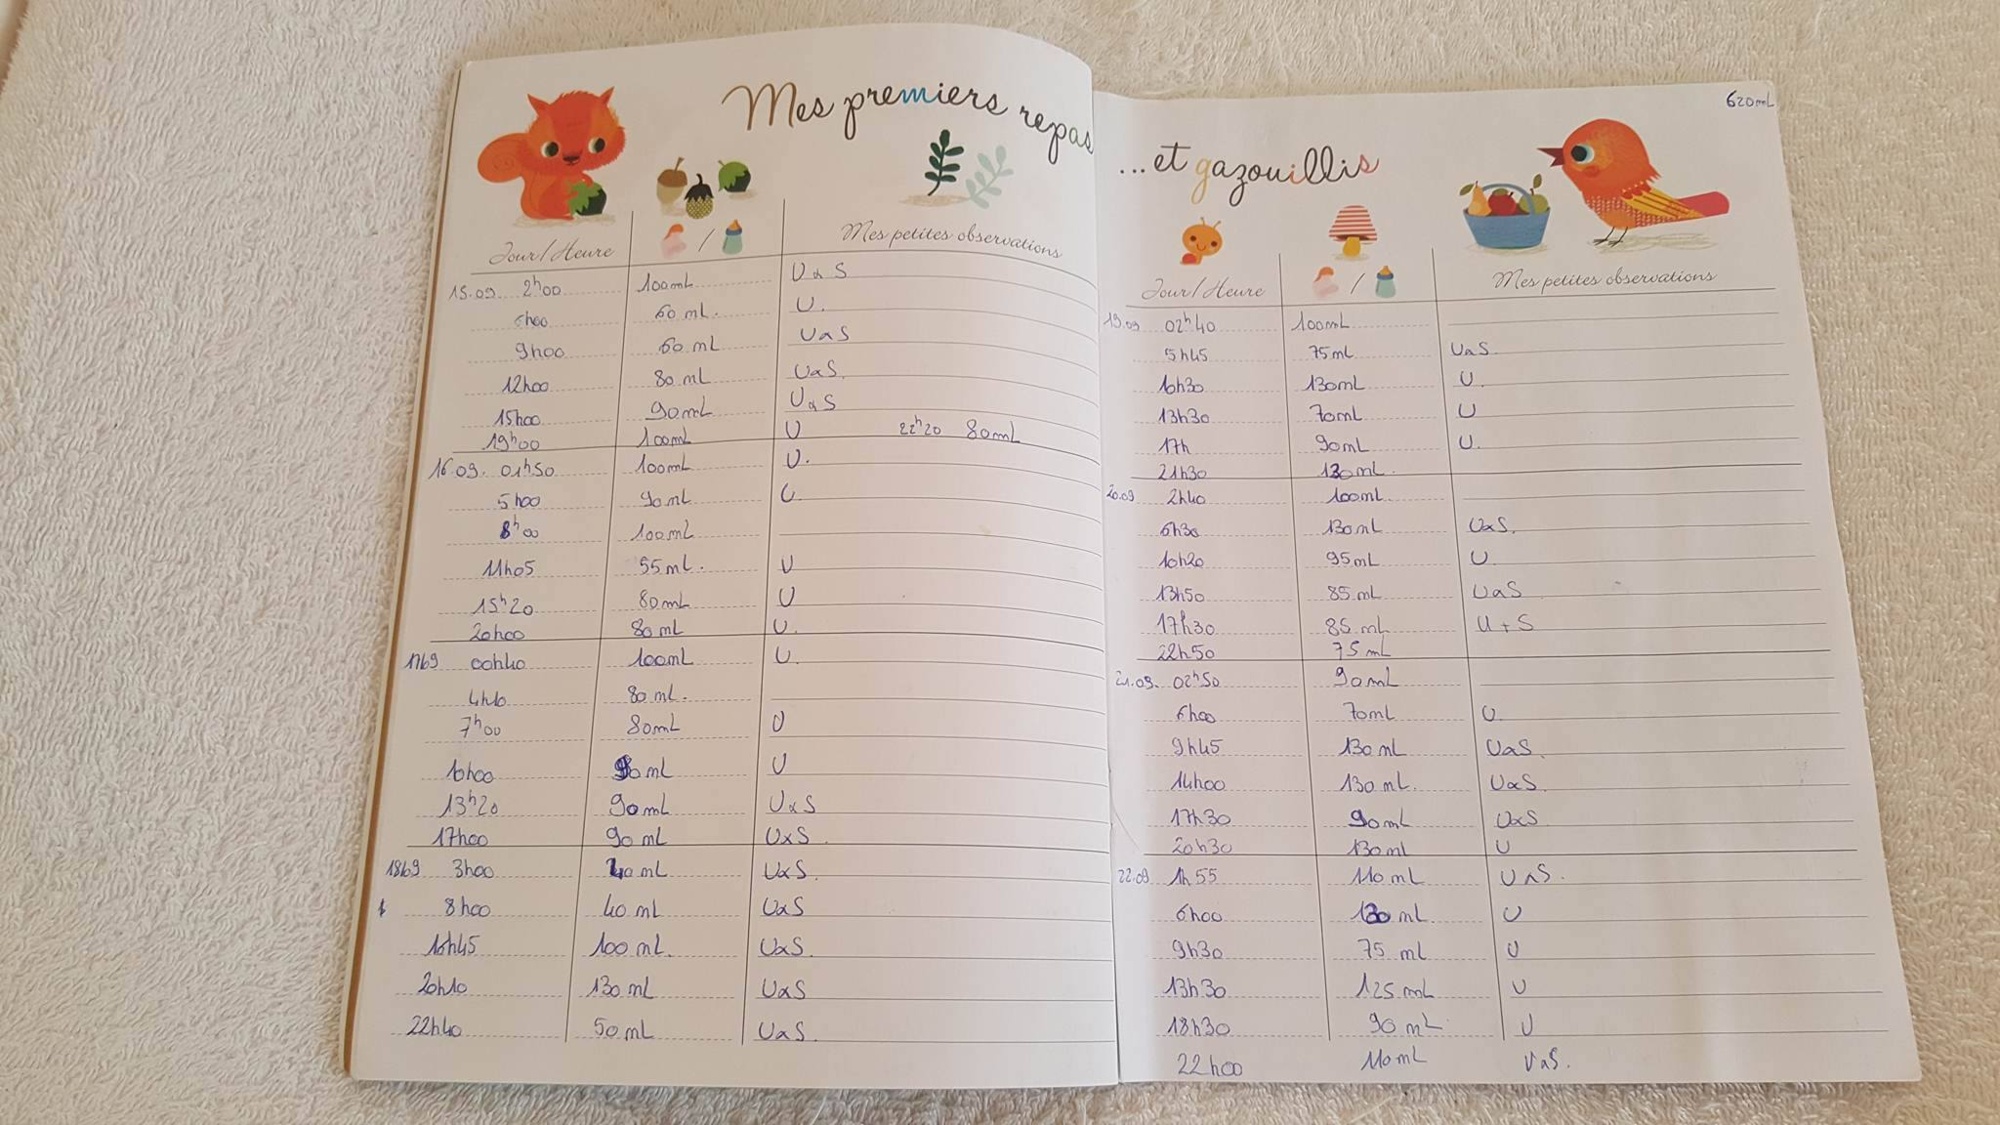 Mes premiers repas
Jour/Heure / Mes petites observations
15.09. 2h00 100mL U & S
6h00 60 mL. U.
9h00 60 mL U&S
12h00 80 mL U&S.
15h00 90mL U&S
19h00 100mL U 22h20 80mL
16.09. 01h50 100mL U.
5h00 90mL U.
8h00 100mL
11h05 55mL. U
15h20 80mL U
20h00 80mL U.
17.09 00h40 100mL U.
4h10 80 mL.
7h00 80mL U
10h00 mL U
13h20 90mL U&S
17h00 90 mL U&S.
18.09 3h00 mL U&S.
8h00 40 mL U&S
16h45 100 mL. U&S.
20h10 130 mL U&S
22h40 50 mL U&S.
620mL
...et gazouillis
Jour/Heure / Mes petites observations
19.09 02h40 100mL
5h45 75mL U&S.
10h30 130mL U.
13h30 70mL U
17h 90mL U.
21h30 130mL.
20.09 2h40 100mL
6h30 130mL U&S.
10h20 95mL U.
13h50 85mL U&S
17h30 85 mL U+S
22h50 75 mL
21.09. 02h50 90mL
6h00 70mL U.
9h45 130 mL U&S.
14h00 130 mL. U&S.
17h30 90mL U&S
20h30 130mL U
22.09 1h55 110 mL U&S.
6h00 130 mL. U
9h30 75 mL U
13h30 125 mL U
18h30 90 mL U
22h00 110mL U&S.